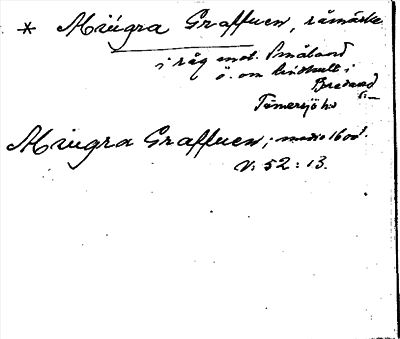 * Miúgra Graffuen, råmärke
i råg mot. Småland
ö. om Lindhult i
Bredared
Tämersjö hd
Miugra Graffuen; medio 1600t.
V. 52:13.